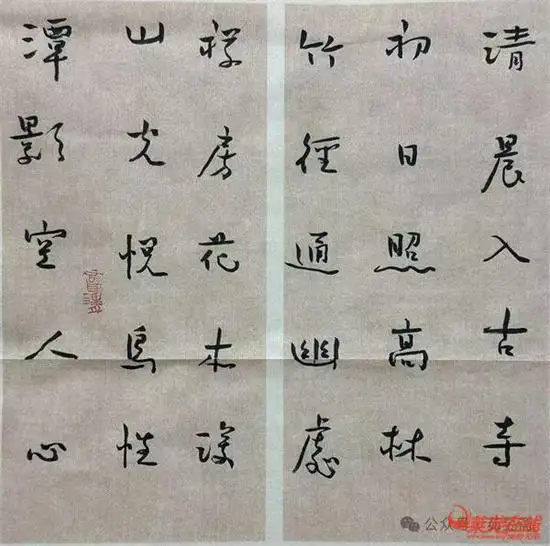 清晨入古寺
初日照高林
竹徑通幽處
禅房花木深
山光悦鳥性
潭影空人心
公众号